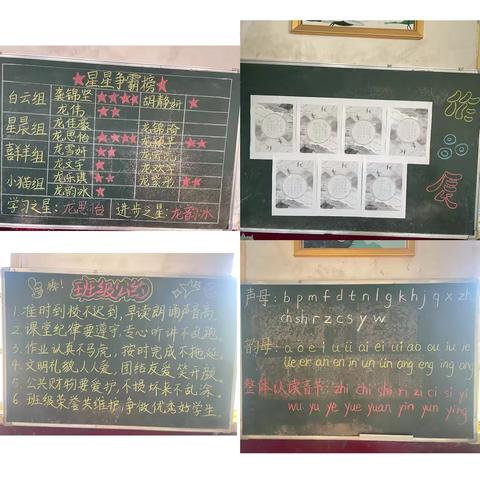 星星争霸榜
白云组 龚锦坚 胡静妍
龙伟
星晨组 龙佳豪
龙思怡
喜羊组 龙雪妍
龙文宇
小猫组 龙乐琪
龙韵冰
学习之星：龙思怡 进步之星：龙韵冰
作品展
班级公约
1.准时到校不迟到，早读朗诵声音高。
2.课堂纪律要遵守，专心听讲不乱跑。
3.作业认真不马虎，按时完成不拖延。
4.文明礼貌人人爱，团结友爱笑开颜。
5.公共财物要爱护，不损坏来不乱涂。
6.班级荣誉共维护，争做优秀好学生。
声母：b p m f d t n l g k h j q x zh
ch sh r z c s y w
韵母：a o e i u ü ai ei ui ao ou iu ie
üe er an en in un ün ang eng ing ong
整体认读音节：zhi chi shi ri zi ci si yi
wu yu ye yue yuan yin yun ying